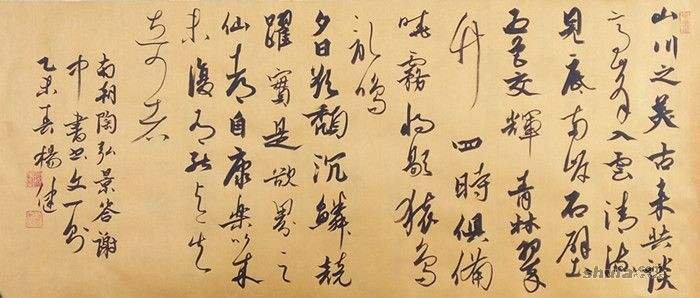 山川之美古来共談
高峰入云清流
見底两岸石壁
五色交輝青林翠
竹四時俱備
曉霧将歇猿鸟
乱鳴
夕日欲頹沉鱗競
躍實是欲界之
仙都自康樂以来
未復有能与其
奇者
南朝陶弘景答謝
中書書文一则
乙未春楊健